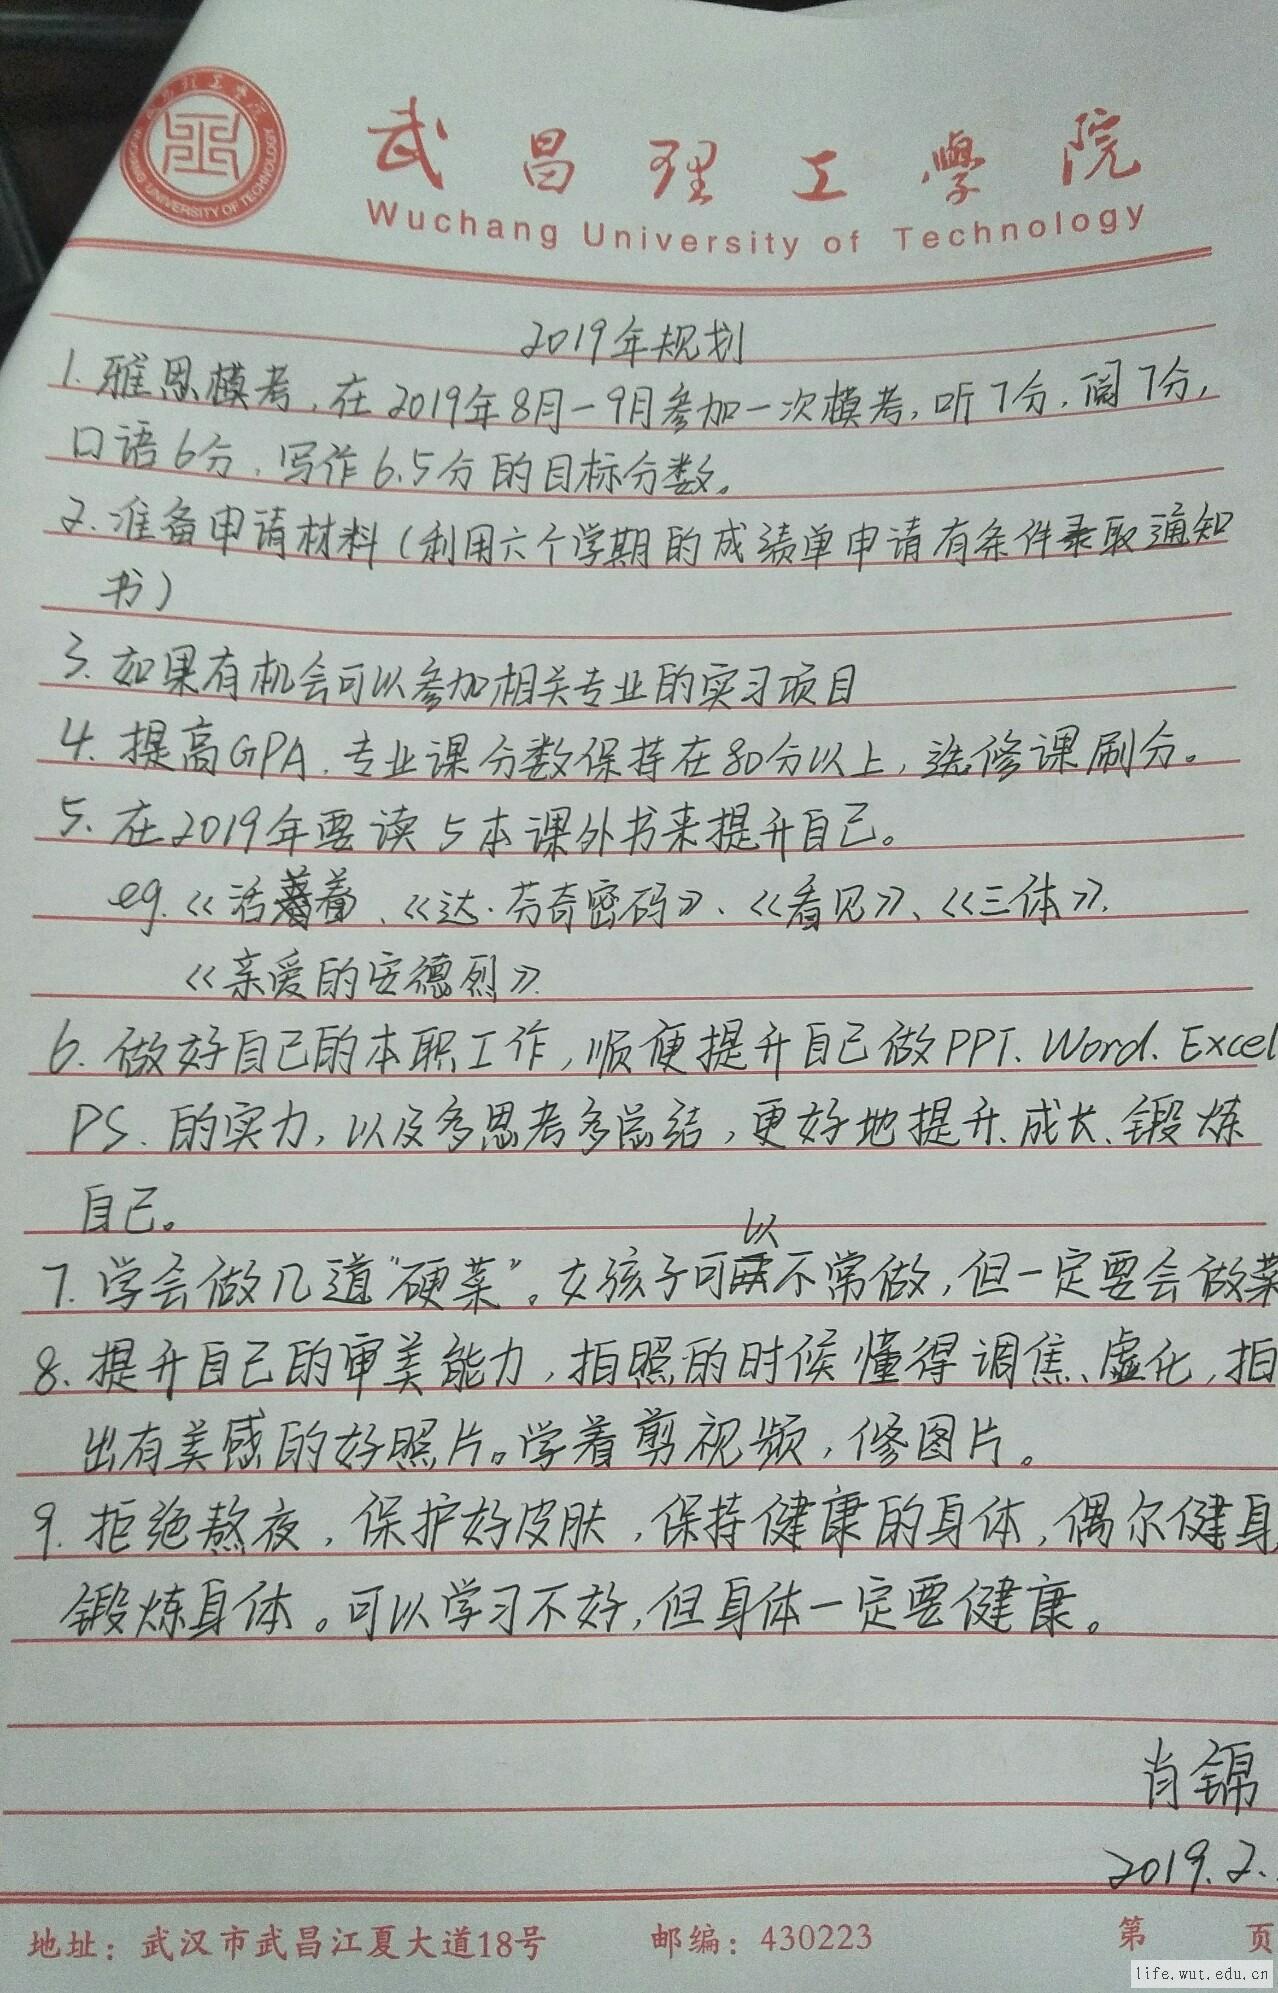 武昌理工學院
Wuchang University of Technology
WUCHANG UNIVERSITY OF TECHNOLOGY
2019年规划
1.雅思模考,在2019年8月-9月参加一次模考,听7分,阅7分,
口语6分,写作6.5分的目标分数。
2.准备申请材料(利用六个学期的成绩单申请有条件录取通知
书)
3.如果有机会可以参加相关专业的实习项目
4.提高GPA,专业课分数保持在80分以上,选修课刷分。
5.在2019年要读5本课外书来提升自己。
eg.《活着》、《达·芬奇密码》、《看见》、《三体》、
《亲爱的安德烈》.
6.做好自己的本职工作,顺便提升自己做PPT、Word、Excel
PS、的实力,以及多思考多总结,更好地提升、成长、锻炼
自己。
7.学会做几道“硬菜”。女孩子可以不常做,但一定要会做菜
8.提升自己的审美能力,拍照的时候懂得调焦、虚化,拍
出有美感的好照片。学着剪视频,修图片。
9.拒绝熬夜,保护好皮肤,保持健康的身体,偶尔健身
锻炼身体。可以学习不好,但身体一定要健康。
肖锦
2019.2.
地址：武汉市武昌江夏大道18号 邮编：430223 第 页
life.wut.edu.cn